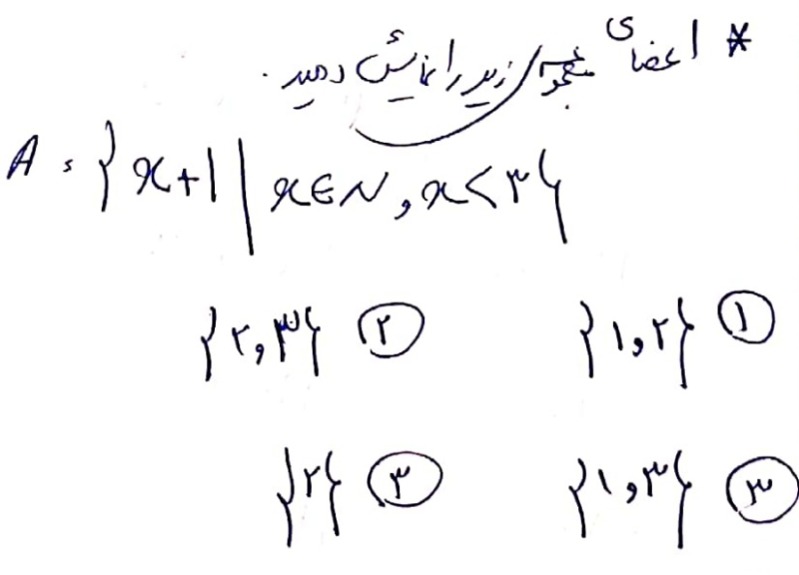 * اعضای مجموعه‌ی زیر را نمایش دهید.
A = {x+1 | x∈N, x<۳}
① {۱,۲} ② {۲,۳}
③ {۱,۳} ③ {۲}